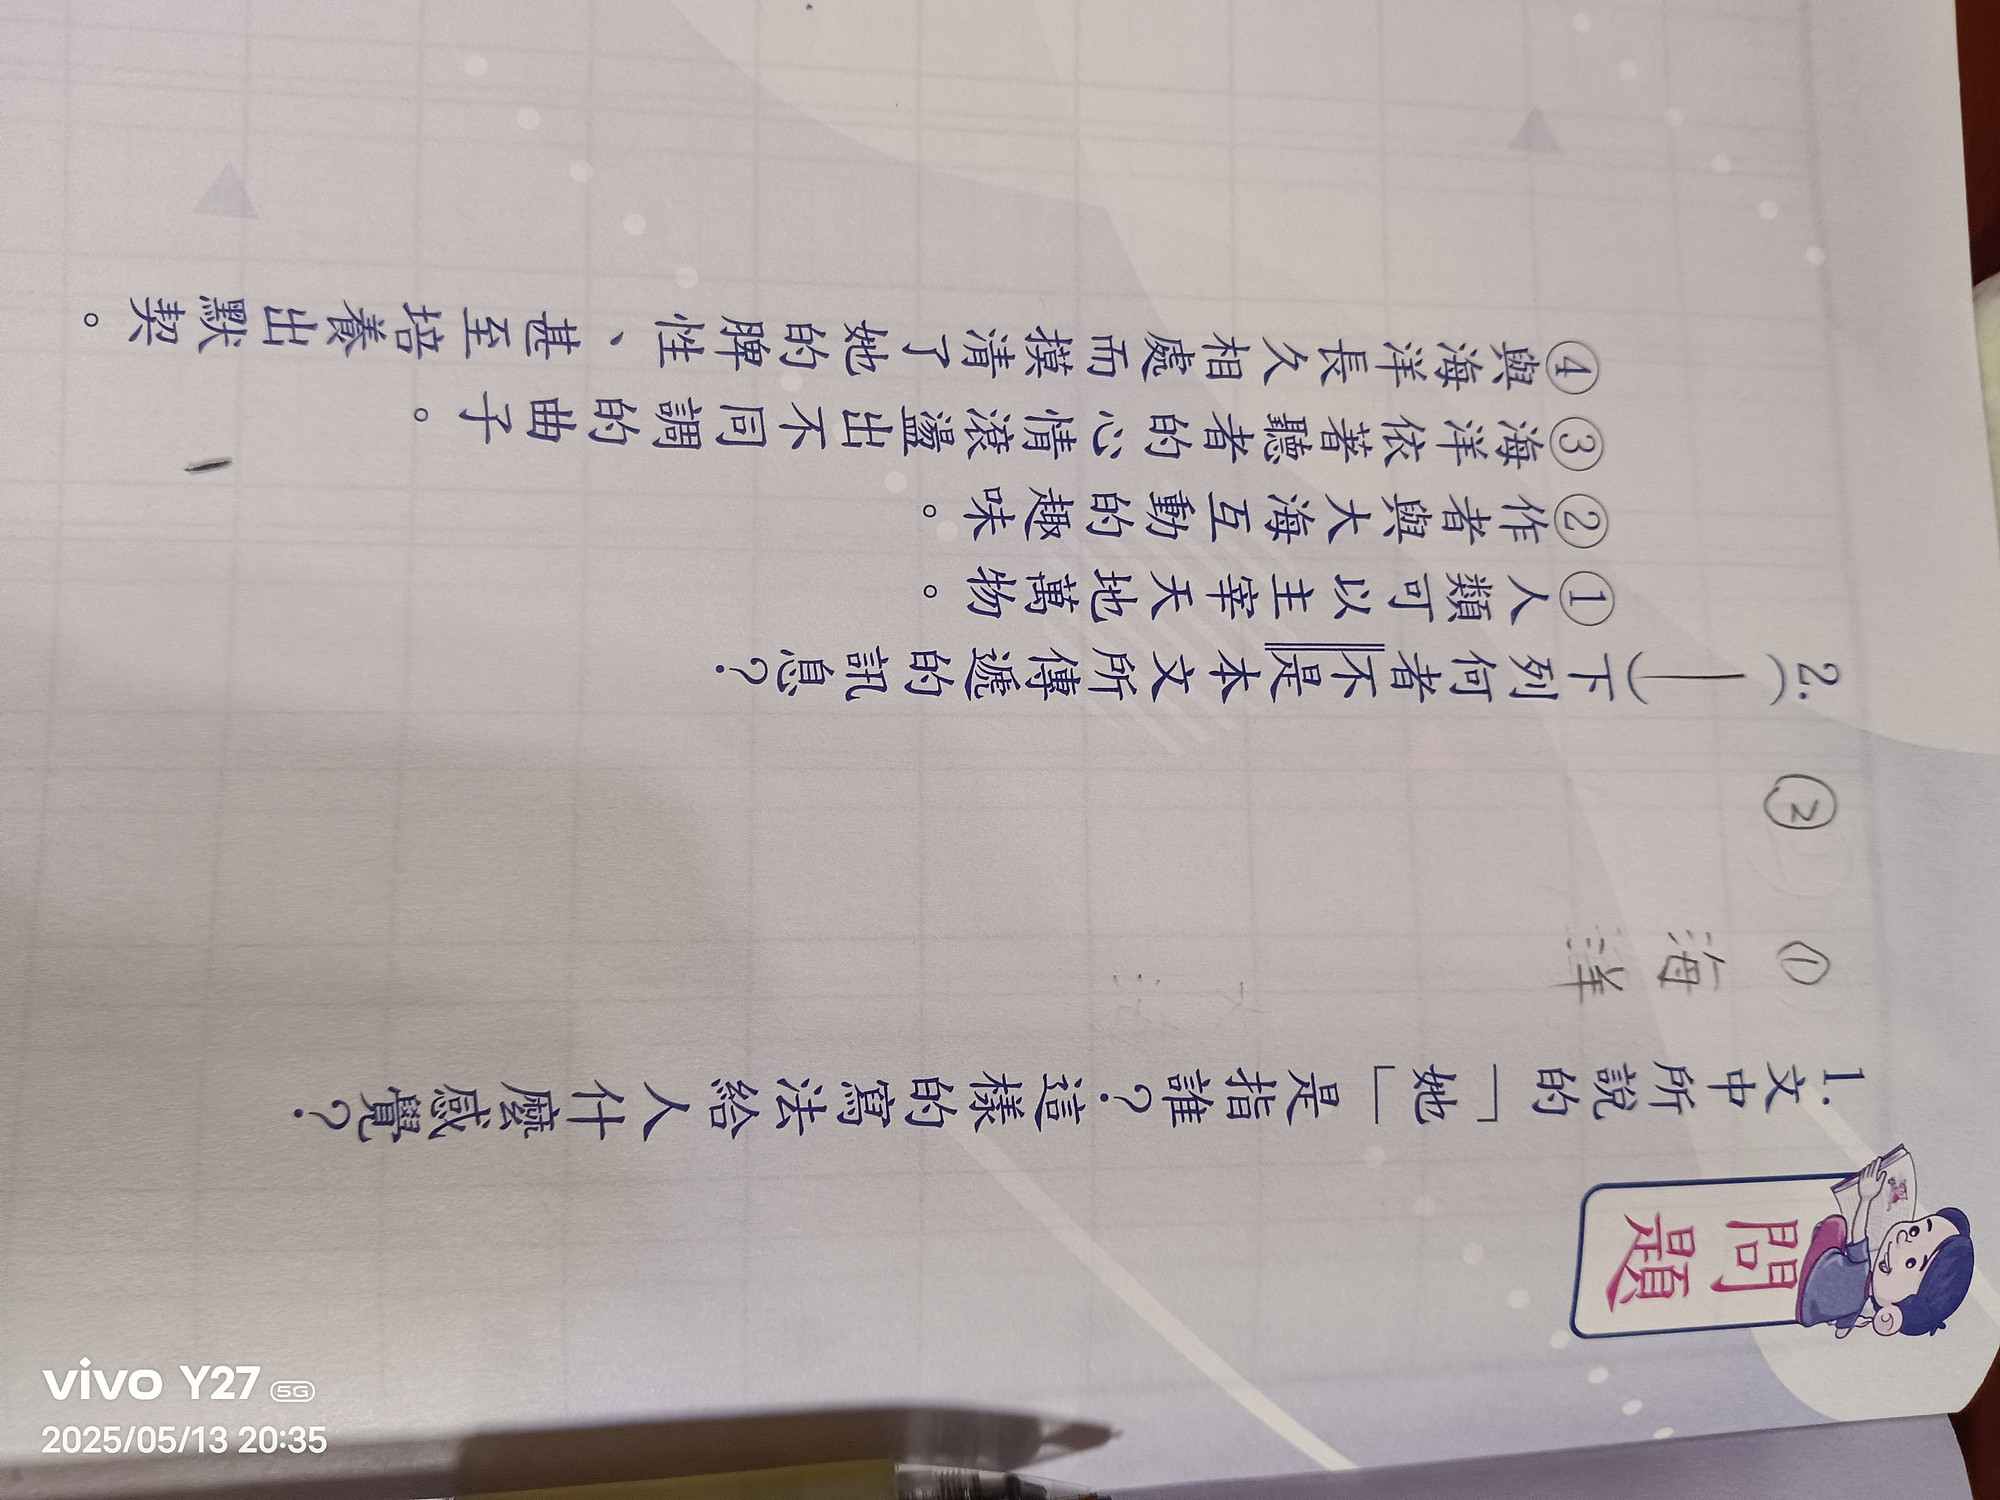 問題
1.文中所說的「她」是指誰？這樣的寫法給人什麼感覺？
① 海洋
②
2.（一）下列何者不是本文所傳遞的訊息？
①人類可以主宰天地萬物。
②作者與大海互動的趣味。
③海洋依著聽者的心情滾盪出不同調的曲子。
④與海洋長久相處而摸清了她的脾性、甚至培養出默契。
vivo Y27 5G
2025/05/13 20:35